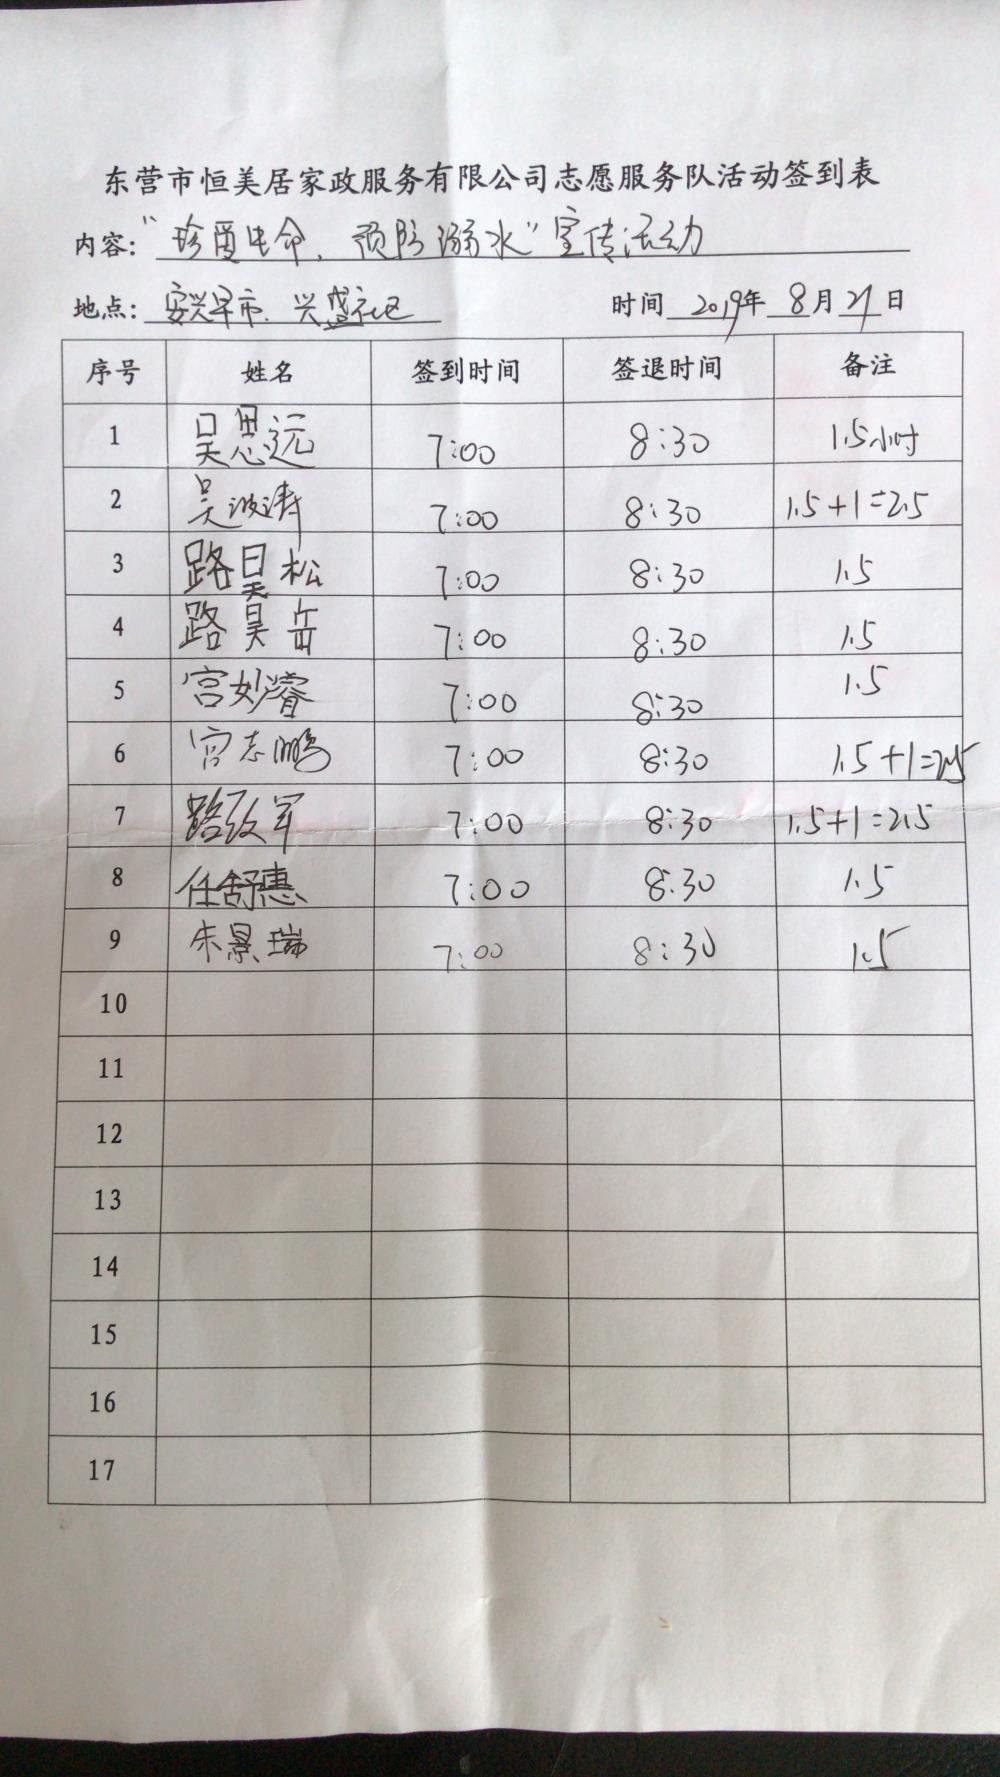 东营市恒美居家政服务有限公司志愿服务队活动签到表
内容："珍爱生命，预防溺水"宣传活动
地点：安兴早市、兴盛社区 时间 2019年 8月 21日
序号 姓名 签到时间 签退时间 备注
1 吴思远 7:00 8:30 1.5小时
2 吴波涛 7:00 8:30 1.5+1=2.5
3 路昊松 7:00 8:30 1.5
4 路昊岳 7:00 8:30 1.5
5 宫妙睿 7:00 8:30 1.5
6 宫志鹏 7:00 8:30 1.5+1=2.5
7 路军 7:00 8:30 1.5+1=2.5
8 任舒惠 7:00 8:30 1.5
9 朱景瑞 7:00 8:30 1.5
10
11
12
13
14
15
16
17